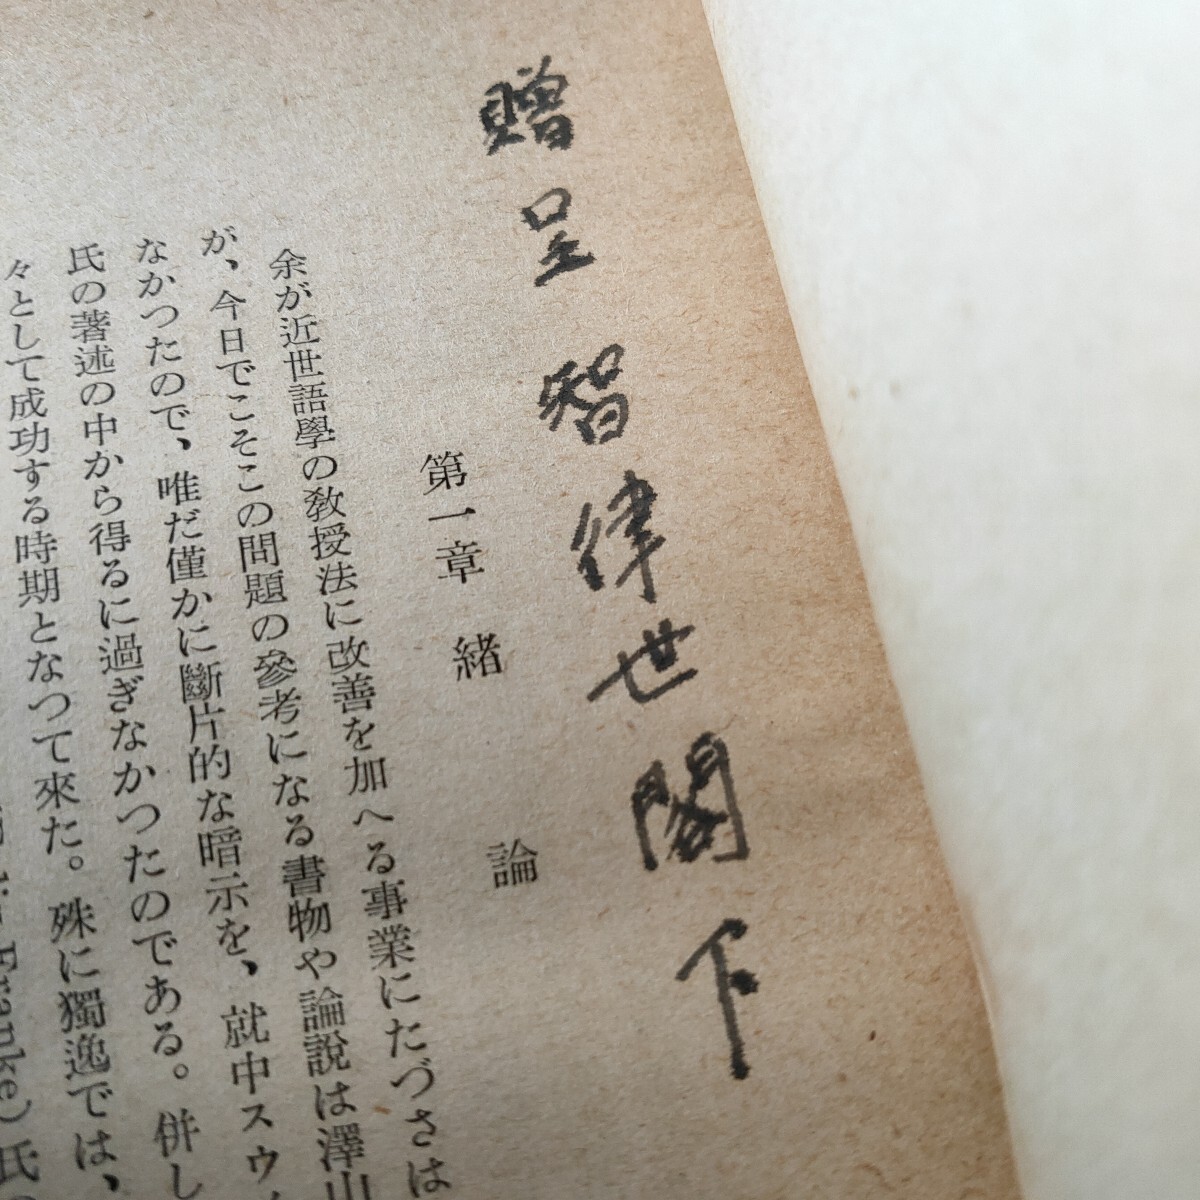 贈呈智律世閣下
第一章 緒 論
余が近世語學の教授法に改善を加へる事業にたづさは
が、今日でこそこの問題の參考になる書物や論説は澤山
なかつたので、唯だ僅かに斷片的な暗示を、就中スウ
氏の著述の中から得るに過ぎなかつたのである。併し
々として成功する時期となつて來た。殊に獨逸では、
Franke)氏